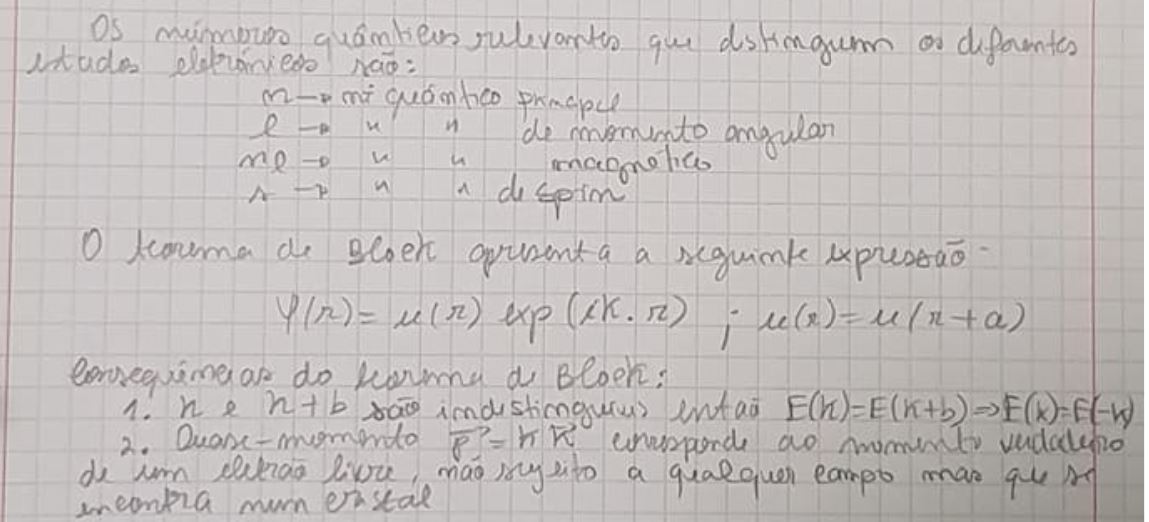 Os números quânticos relevantes que distinguem os diferentes
estados eletrónicos são:
n → nº quântico principal
l → " " de momento angular
ml → " " magnético
s → " " de spin
O teorema de Bloch apresenta a seguinte expressão
Ψ(r) = u(r) exp(ik.r) ; u(r) = u(r+a)
Consequências do teorema de Bloch:
1. k e k+b são indistinguíveis então E(k)=E(k+b) ⇒ E(k)=E(-k)
2. Quase-momento p⃗ = ħk⃗ corresponde ao momento verdadeiro
de um eletrão livre, não sujeito a qualquer campo mas que se
encontra num cristal